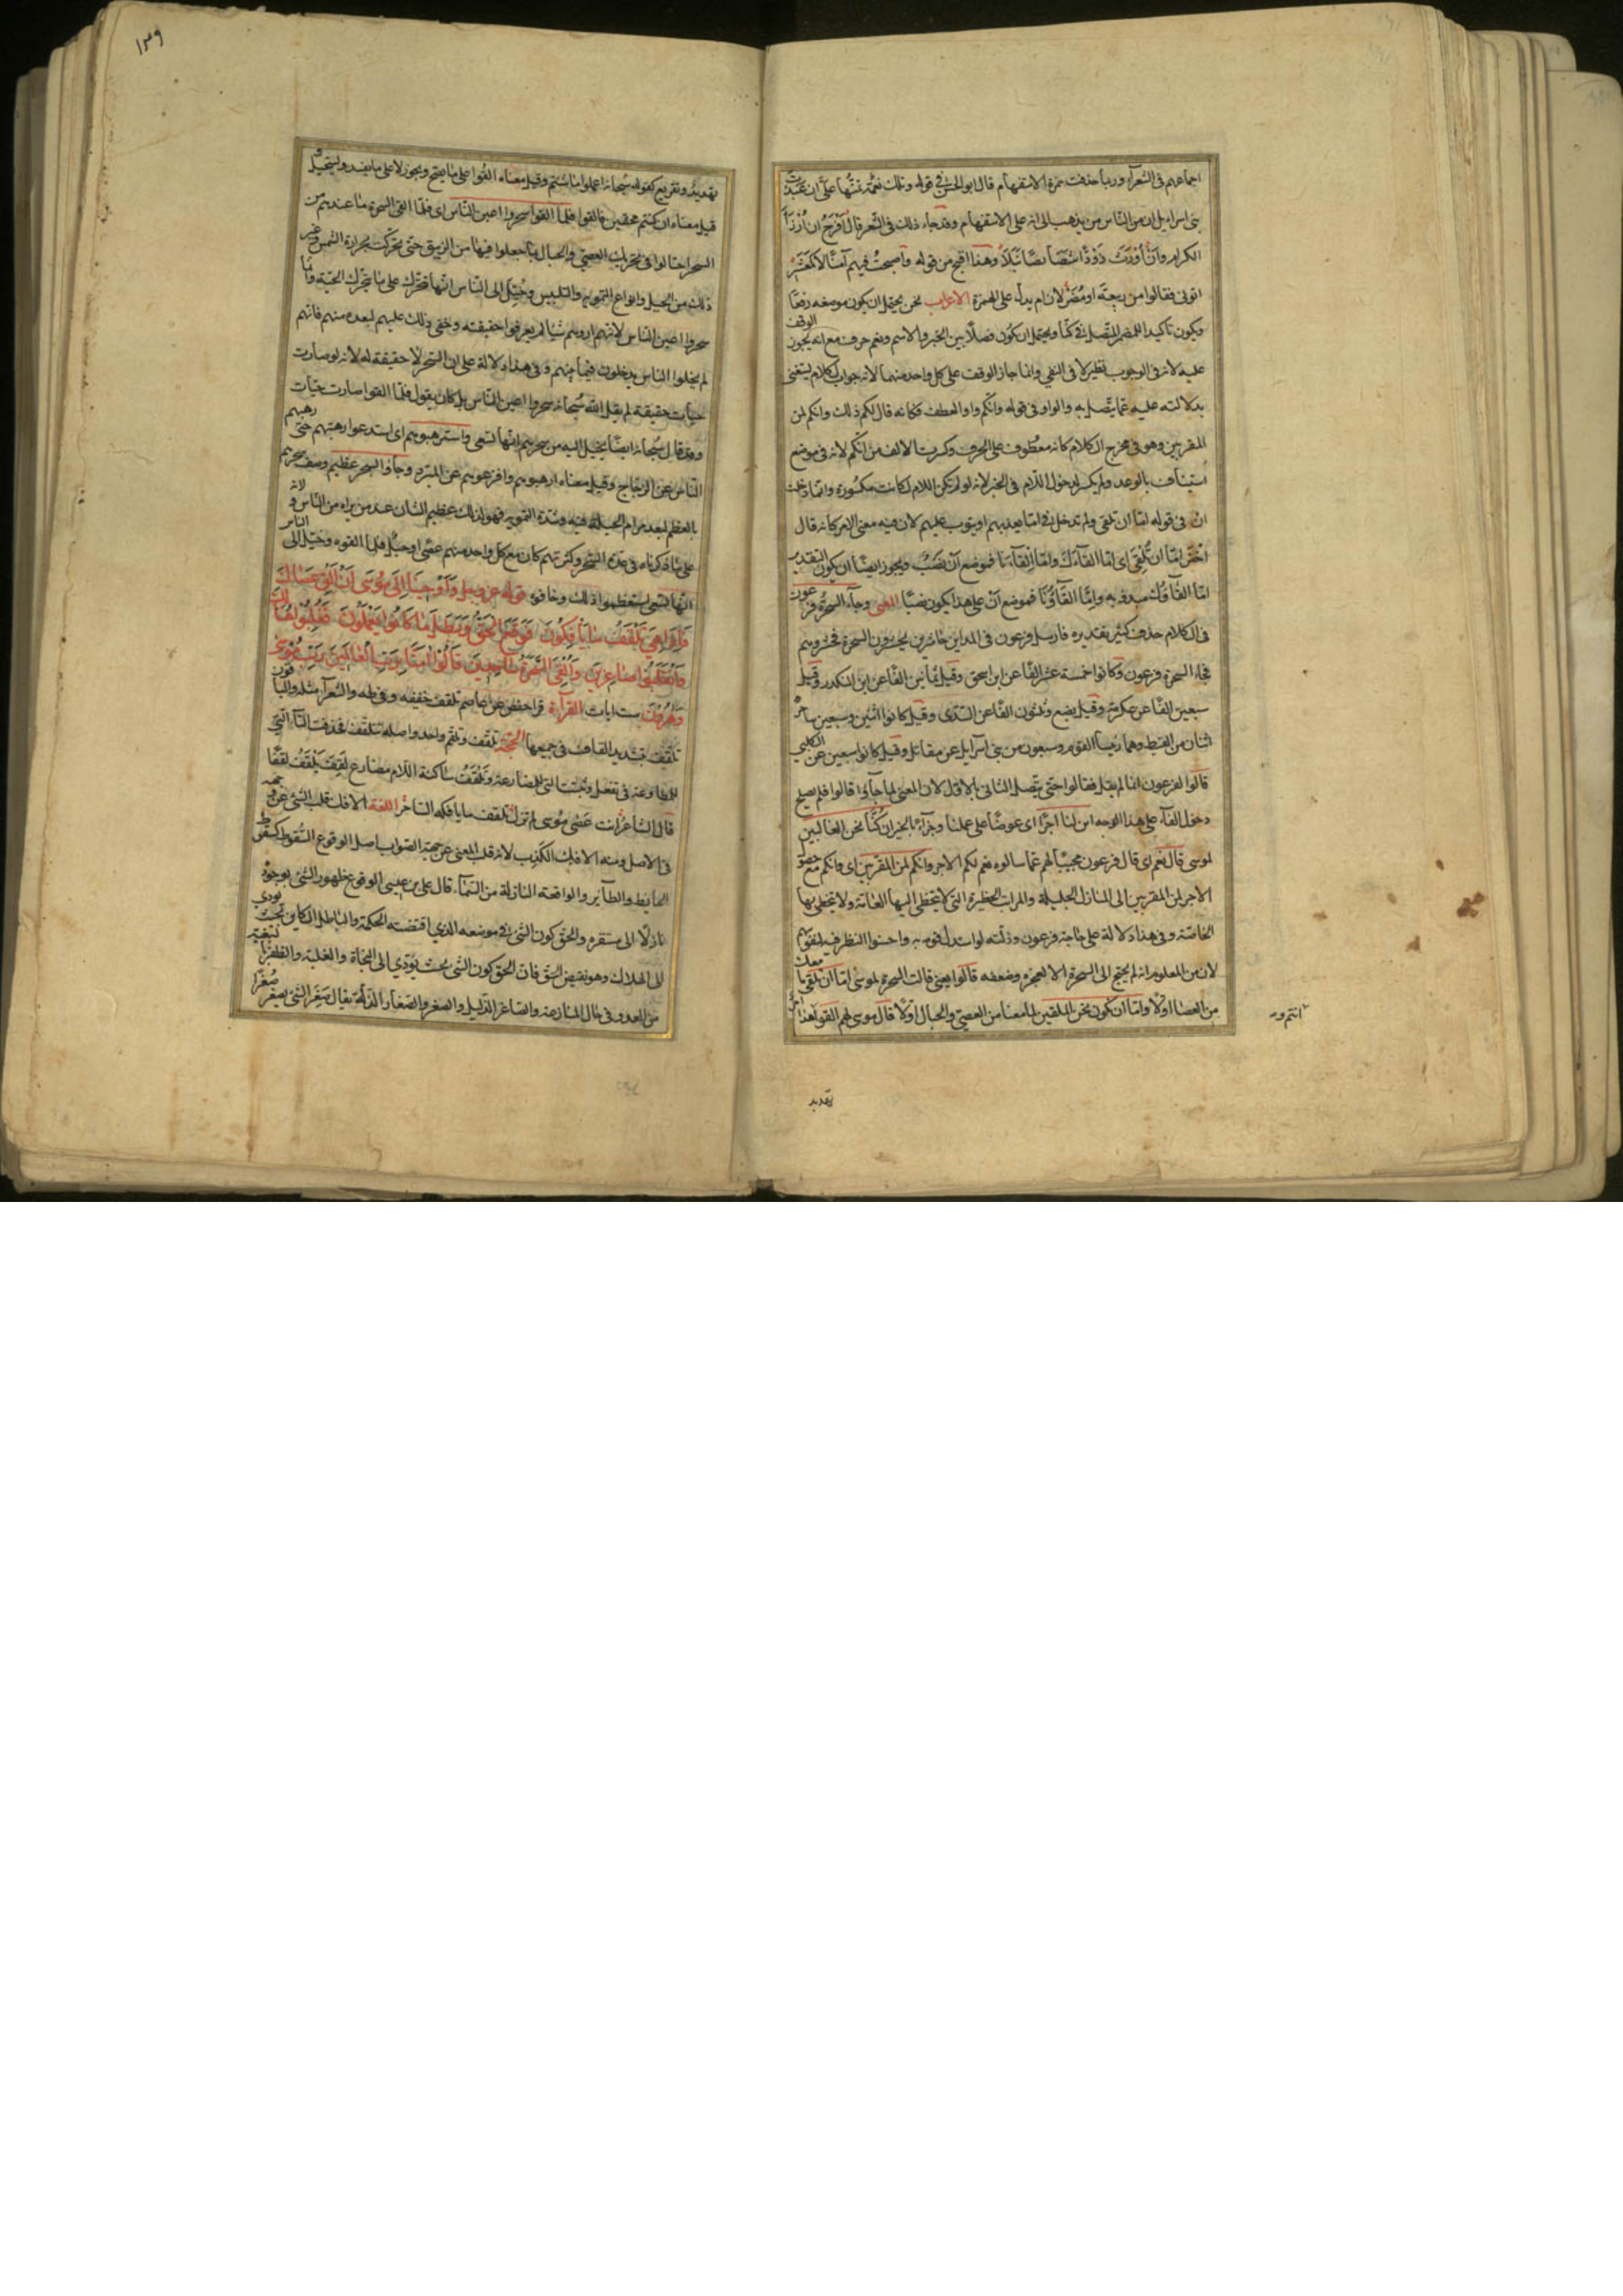 اجماعهم فى الشعرآء وربما حذفت همزة الاستفهام قال ابو الحسن فى قوله وتلك نعمة تمنّها علىّ ان عبّدت
بنى اسرايل ان من الناس من يذهب الى انه على الاستفهام وقد جاء ذلك فى الشعر قال افرح ان أرزأ
الكرام وان أورث ذودًا شصائصًا نبلًا وهذا اقبح من قوله واصبحت فيهم آمنًا لا كمعشر
اتونى فقالوا من ربيعة او مضر لان ام يدل على الهمزة الاعراب نحن يحتمل ان يكون موضعه رفعًا
ويكون تأكيدا للضمر المتصل فى كنّا ويحتمل ان يكون فصلًا بين الخبر والاسم ونعم حرف مع انه يجوز الوقف
عليه لانه فى الوجوب نظير لا فى النفي وانما جاز الوقف على كل واحد منهما لانه جواب لكلام يستغنى
بدلالته عليه عما يتصل به والواو فى قوله وانّكم واو العطف فكانه قال لكم ذلك وانكم لمن
المقربين وهو فى مخرج الكلام كانه معطوف على الحرف وكسرت الالف من انّكم لانه فى موضع
استيناف بالوعد ولم يكسر لدخول اللام فى الخبر لانه لو لم يكن اللام لكانت مكسورة وانما دخلت
ان فى قوله امّا ان تلقى ولم تدخل فى امّا يعذبهم او يتوب عليهم لان فيه معنى الامر كانه قال
اختر امّا ان تلقى اى امّا القآءك وامّا القآءنا فموضع ان نصب ويجوز ايضًا ان يكون التقدير
امّا القآؤك مبدوء به وامّا القآؤنا فموضع ان على هذا يكون نصبًا المعنى وجآء السحرة فرعون
فى الكلام حذف كثير تقديره فارسل فرعون فى المداين حاشرين يحشرون السحرة فحشروهم
فجاء السحرة فرعون وكانوا خمسة عشر الفًا عن ابن اسحق وقيل ثمانين الفًا عن ابن المنكدر وقيل
سبعين الفًا عن عكرمة وقيل بضع وثلثون الفًا عن السّدى وقيل كانوا اثنين وسبعين ساحرًا
اثنان من القبط وهما رئيسا القوم وسبعون من بنى اسرآيل عن مقاتل وقيل كانوا سبعين عن الكلبي
قالوا لفرعون انما لم يقل فقالوا حتى يتصل الثانى بالاوّل لان المعنى لما جآؤا قالوا فلم يصلح
دخول الفآء على هذا الوجه اين لنا اجرًا اى عوضًا على عملنا وجزآءً بالخير ان كنّا نحن الغالبين
لموسى قال نعم اى قال فرعون مجيبًا لهم عما سالوه نعم لكم الاجر وانكم لمن المقربين اى وانكم مع حصول
الاجر لمن المقربين الى المنازل الجليلة والمراتب الخطيرة التى لا يتخطى اليها العامّة ولا يتخطى بها
الخاصّة وفى هذا دلالة على حاجة فرعون وذلّته لو استدل قومه به واحسنوا النظر فيه لنفوسهم
لان من المعلوم انه لم يحتج الى السحرة الا لعجزه وضعفه قالوا يعنى قالت السحرة لموسى امّا ان تلقى ما معك
من العصا اوّلًا وامّا ان نكون نحن الملقين لما معنا من العصىّ والحبال اوّلًا قال موسى لهم القوا هذا امر
تهديد
١٣٩
تهديد وتقريع كقوله سبحانه اعملوا ما شئتم وقيل معناه القوا على ما يصح ويجوز لا على ما يفسد ويستحيل
قيل معناه ان كنتم محقين فالقوا فلمّا القوا سحروا اعين النّاس اى فلمّا القى السحرة ما عندهم من
السحر احتالوا فى تحريك العصىّ والحبال بما جعلوا فيها من الزيبق حتى تحركت بحرارة الشمس وغير
ذلك من الحيل وانواع التمويه والتلبيس وخيّل الى النّاس انّها تتحرّك على ما يتحرّك الحيّة وانما
سحروا اعين الناس لانهم اروهم شيئا لم يعرفوا حقيقته وخفى ذلك عليهم لبعده منهم فانهم
لم يخلوا الناس يدخلون فيما بينهم وفى هذا دلالة على ان السحر لا حقيقة له لانه لو صارت
حيات حقيقة لم يقل الله سبحانه سحروا اعين النّاس بل كان يقول فلمّا القوا صارت حيّات
وقد قال سبحانه ايضًا يخيل اليه من سحرهم انها تسعى واسترهبوهم اى استدعوا رهبتهم حتى رهبهم
النّاس عن الزجاج وقيل معناه ارهبوهم وافزعوهم عن المبرد وجآؤا بسحر عظيم وصف سحرهم
بالعظم لبعد مرام الحيلة فيه وشدة التمويه فهو لذلك عظيم الشان عند من يراه من الناس ولانه
على ما ذكرناه فى عدة السحرة وكثرتهم كان مع كل واحد منهم عصًى او حبل فلما القوه وخيّل الى الناس
انّها تسعى استعظموا ذلك وخافوه قوله عز وجل وَاَوْحَيْنَا اِلىٰ مُوسىٰ اَنْ اَلْقِ عَصَاكَ
فَاِذَا هِىَ تَلْقَفُ مَا يَأْفِكُونَ فَوَقَعَ الْحَقُّ وَبَطَلَ مَا كَانُوا يَعْمَلُونَ فَغُلِبُوا هُنَالِكَ
وَانْقَلَبُوا صَاغِرِينَ وَاُلْقِىَ السَّحَرَةُ سَاجِدِينَ قَالُوا اٰمَنَّا بِرَبِّ الْعَالَمِينَ رَبِّ مُوسىٰ
وَهٰرُونَ ست ايات القرآءة قرا حفص عن عاصم تلقف خفيفه وفى طه والشعرآء مثله والباقون
تلقّف بتشديد القاف فى جميعها الحجّة تلقّف وتلقم واحد واصله تتلقّف فحذفت التآء التى
للمطاوعة فى تفعل وثبتت التى للمضارعة وتلقف ساكنة اللام مضارع لقف يلقف لقفًا
قال الشاعر انت عصى موسى لم تزل تلقف ما يأفكه الساحر اللغة الافك قلب الشئ عن وجهه
فى الاصل ومنه الافك الكذب لانه قلب المعنى عن جهة الصواب اصل الوقوع السّقوط كسقوط
الحايط والطآير والواقعة النازلة من السّمآء قال على بن عيسى الوقوع ظهور الشئ بوجوده
نازلًا الى مستقره والحق كون الشئ فى موضعه الذى اقتضته الحكمة والباطل الكاين بحيث يودي
الى الهلاك وهو نقيض الحق فانّ الحق كون الشئ بحيث يؤدّي الى النجاة والغلبة والظفر
من العدو فى حال المنازعة والصاغر الذليل والصغر والصّغار الذلّة يقال صَغِرَ الشئ يصغر صُغرًا